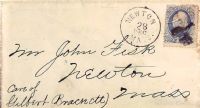 NEWTON
29
MASS
Mr John Fisk
Newton
Care of
Gilbert Brackett)
Mass